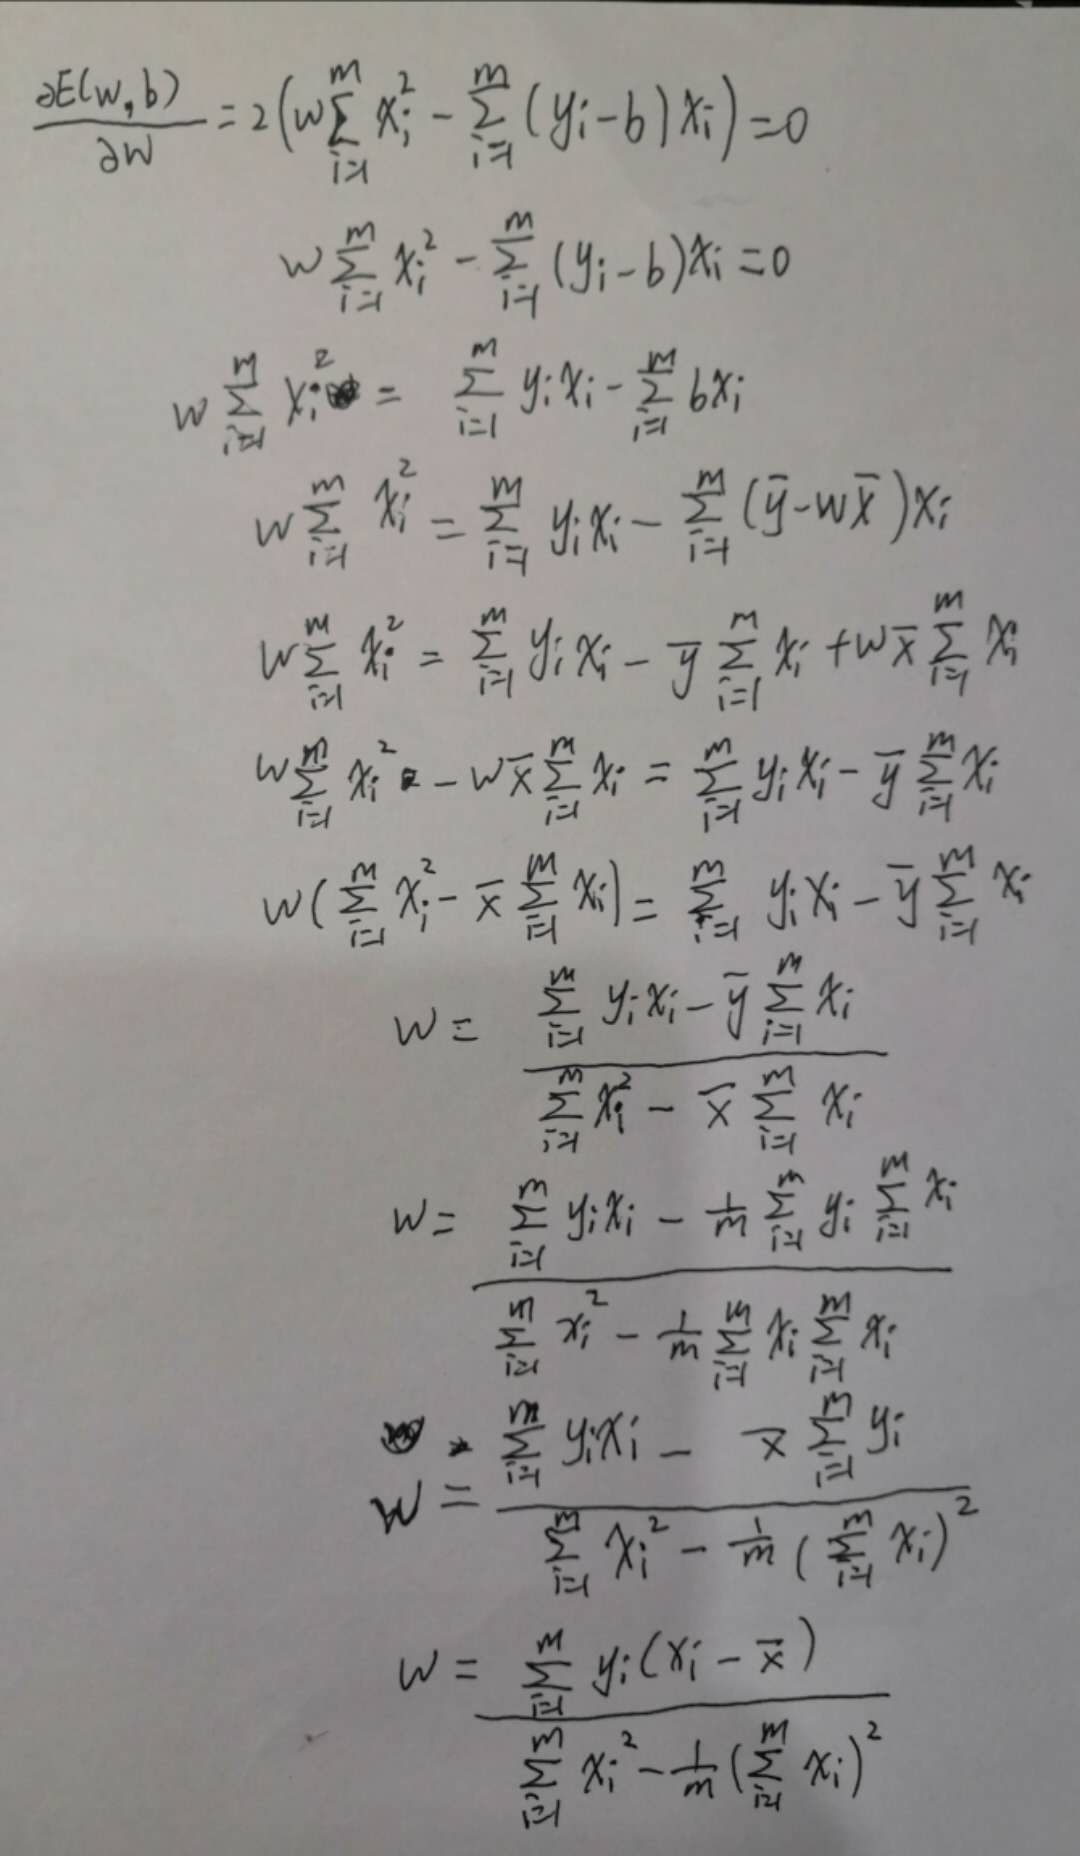 ∂E(w,b)/∂w = 2(w∑_{i=1}^{m} x_i^2 − ∑_{i=1}^{m} (y_i − b) x_i) = 0
w∑_{i=1}^{m} x_i^2 − ∑_{i=1}^{m} (y_i − b) x_i = 0
w∑_{i=1}^{m} x_i^2 = ∑_{i=1}^{m} y_i x_i − ∑_{i=1}^{m} b x_i
w∑_{i=1}^{m} x_i^2 = ∑_{i=1}^{m} y_i x_i − ∑_{i=1}^{m} (ȳ − w x̄) x_i
w∑_{i=1}^{m} x_i^2 = ∑_{i=1}^{m} y_i x_i − ȳ ∑_{i=1}^{m} x_i + w x̄ ∑_{i=1}^{m} x_i
w∑_{i=1}^{m} x_i^2 − w x̄ ∑_{i=1}^{m} x_i = ∑_{i=1}^{m} y_i x_i − ȳ ∑_{i=1}^{m} x_i
w(∑_{i=1}^{m} x_i^2 − x̄ ∑_{i=1}^{m} x_i) = ∑_{i=1}^{m} y_i x_i − ȳ ∑_{i=1}^{m} x_i
w = (∑_{i=1}^{m} y_i x_i − ȳ ∑_{i=1}^{m} x_i) / (∑_{i=1}^{m} x_i^2 − x̄ ∑_{i=1}^{m} x_i)
w = (∑_{i=1}^{m} y_i x_i − 1/m ∑_{i=1}^{m} y_i ∑_{i=1}^{m} x_i) / (∑_{i=1}^{m} x_i^2 − 1/m ∑_{i=1}^{m} x_i ∑_{i=1}^{m} x_i)
w = (∑_{i=1}^{m} y_i x_i − x̄ ∑_{i=1}^{m} y_i) / (∑_{i=1}^{m} x_i^2 − 1/m (∑_{i=1}^{m} x_i)^2)
w = (∑_{i=1}^{m} y_i (x_i − x̄)) / (∑_{i=1}^{m} x_i^2 − 1/m (∑_{i=1}^{m} x_i)^2)